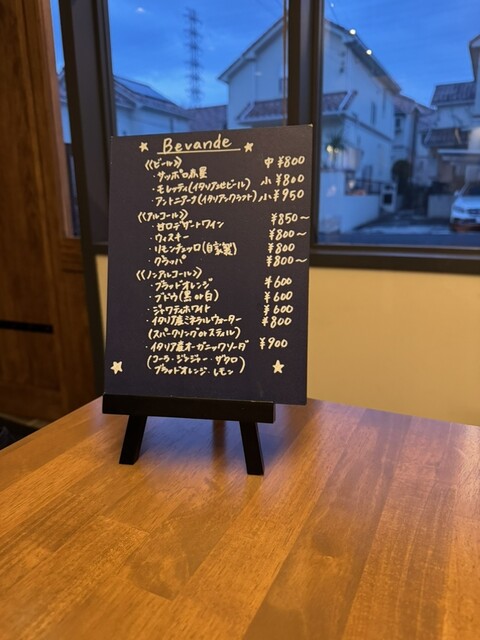 ☆ Bevande ☆
《ビール》
・サッポロ赤星 中 ¥800
・モレッティ(イタリア地ビール) 小 ¥800
・アントニアーナ(イタリアクラフト) 小 ¥950
《アルコール》
・甘口デザートワイン ¥850〜
・ウィスキー ¥800〜
・リモンチェッロ(自家製) ¥800
・グラッパ ¥800〜
《ノンアルコール》
・ブラッドオレンジ ¥600
・ブドウ(黒or白) ¥600
・ジャワティホワイト ¥600
・イタリア産ミネラルウォーター ¥800
(スパークリングorスティル)
・イタリア産オーガニックソーダ ¥900
(コーラ・ジンジャー・ザクロ
ブラッドオレンジ・レモン)